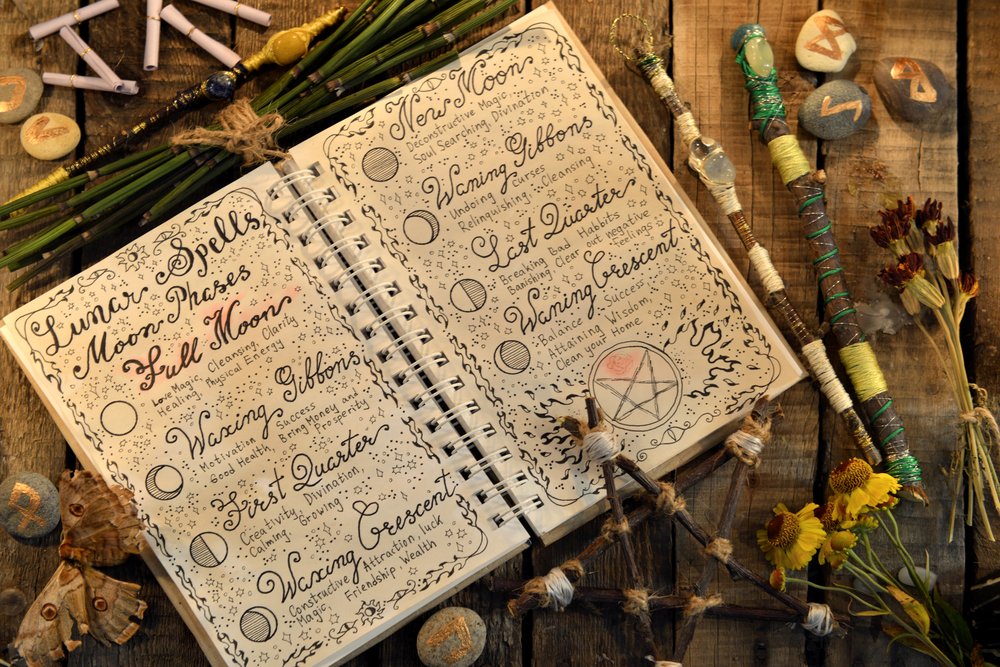 Lunar Spells
Moon Phases
Full Moon
Love Magic, Cleansing, Clarity
Healing, Physical Energy
Waxing Gibbons
Motivation Success
Good Health, Bring Money and
Prosperity
First Quarter
Creativity, Divination,
Calming, Growing
Waxing Crescent
Constructive Attraction luck
Magic, Friendship Wealth
New Moon
Deconstructive Magic
Soul Searching, Divination
Waning Gibbons
Undoing Curses
Relinquishing, Cleansing
Last Quarter
Breaking Bad Habits
Banishing, Clear out negative
feelings
Waning Crescent
Balance Success
Attaining Wisdom,
Clean your Home